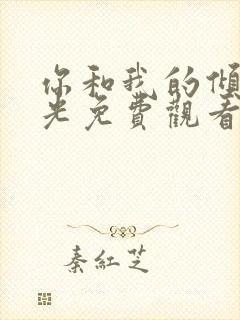 你和我的傾
光免費觀看
秦紅芝